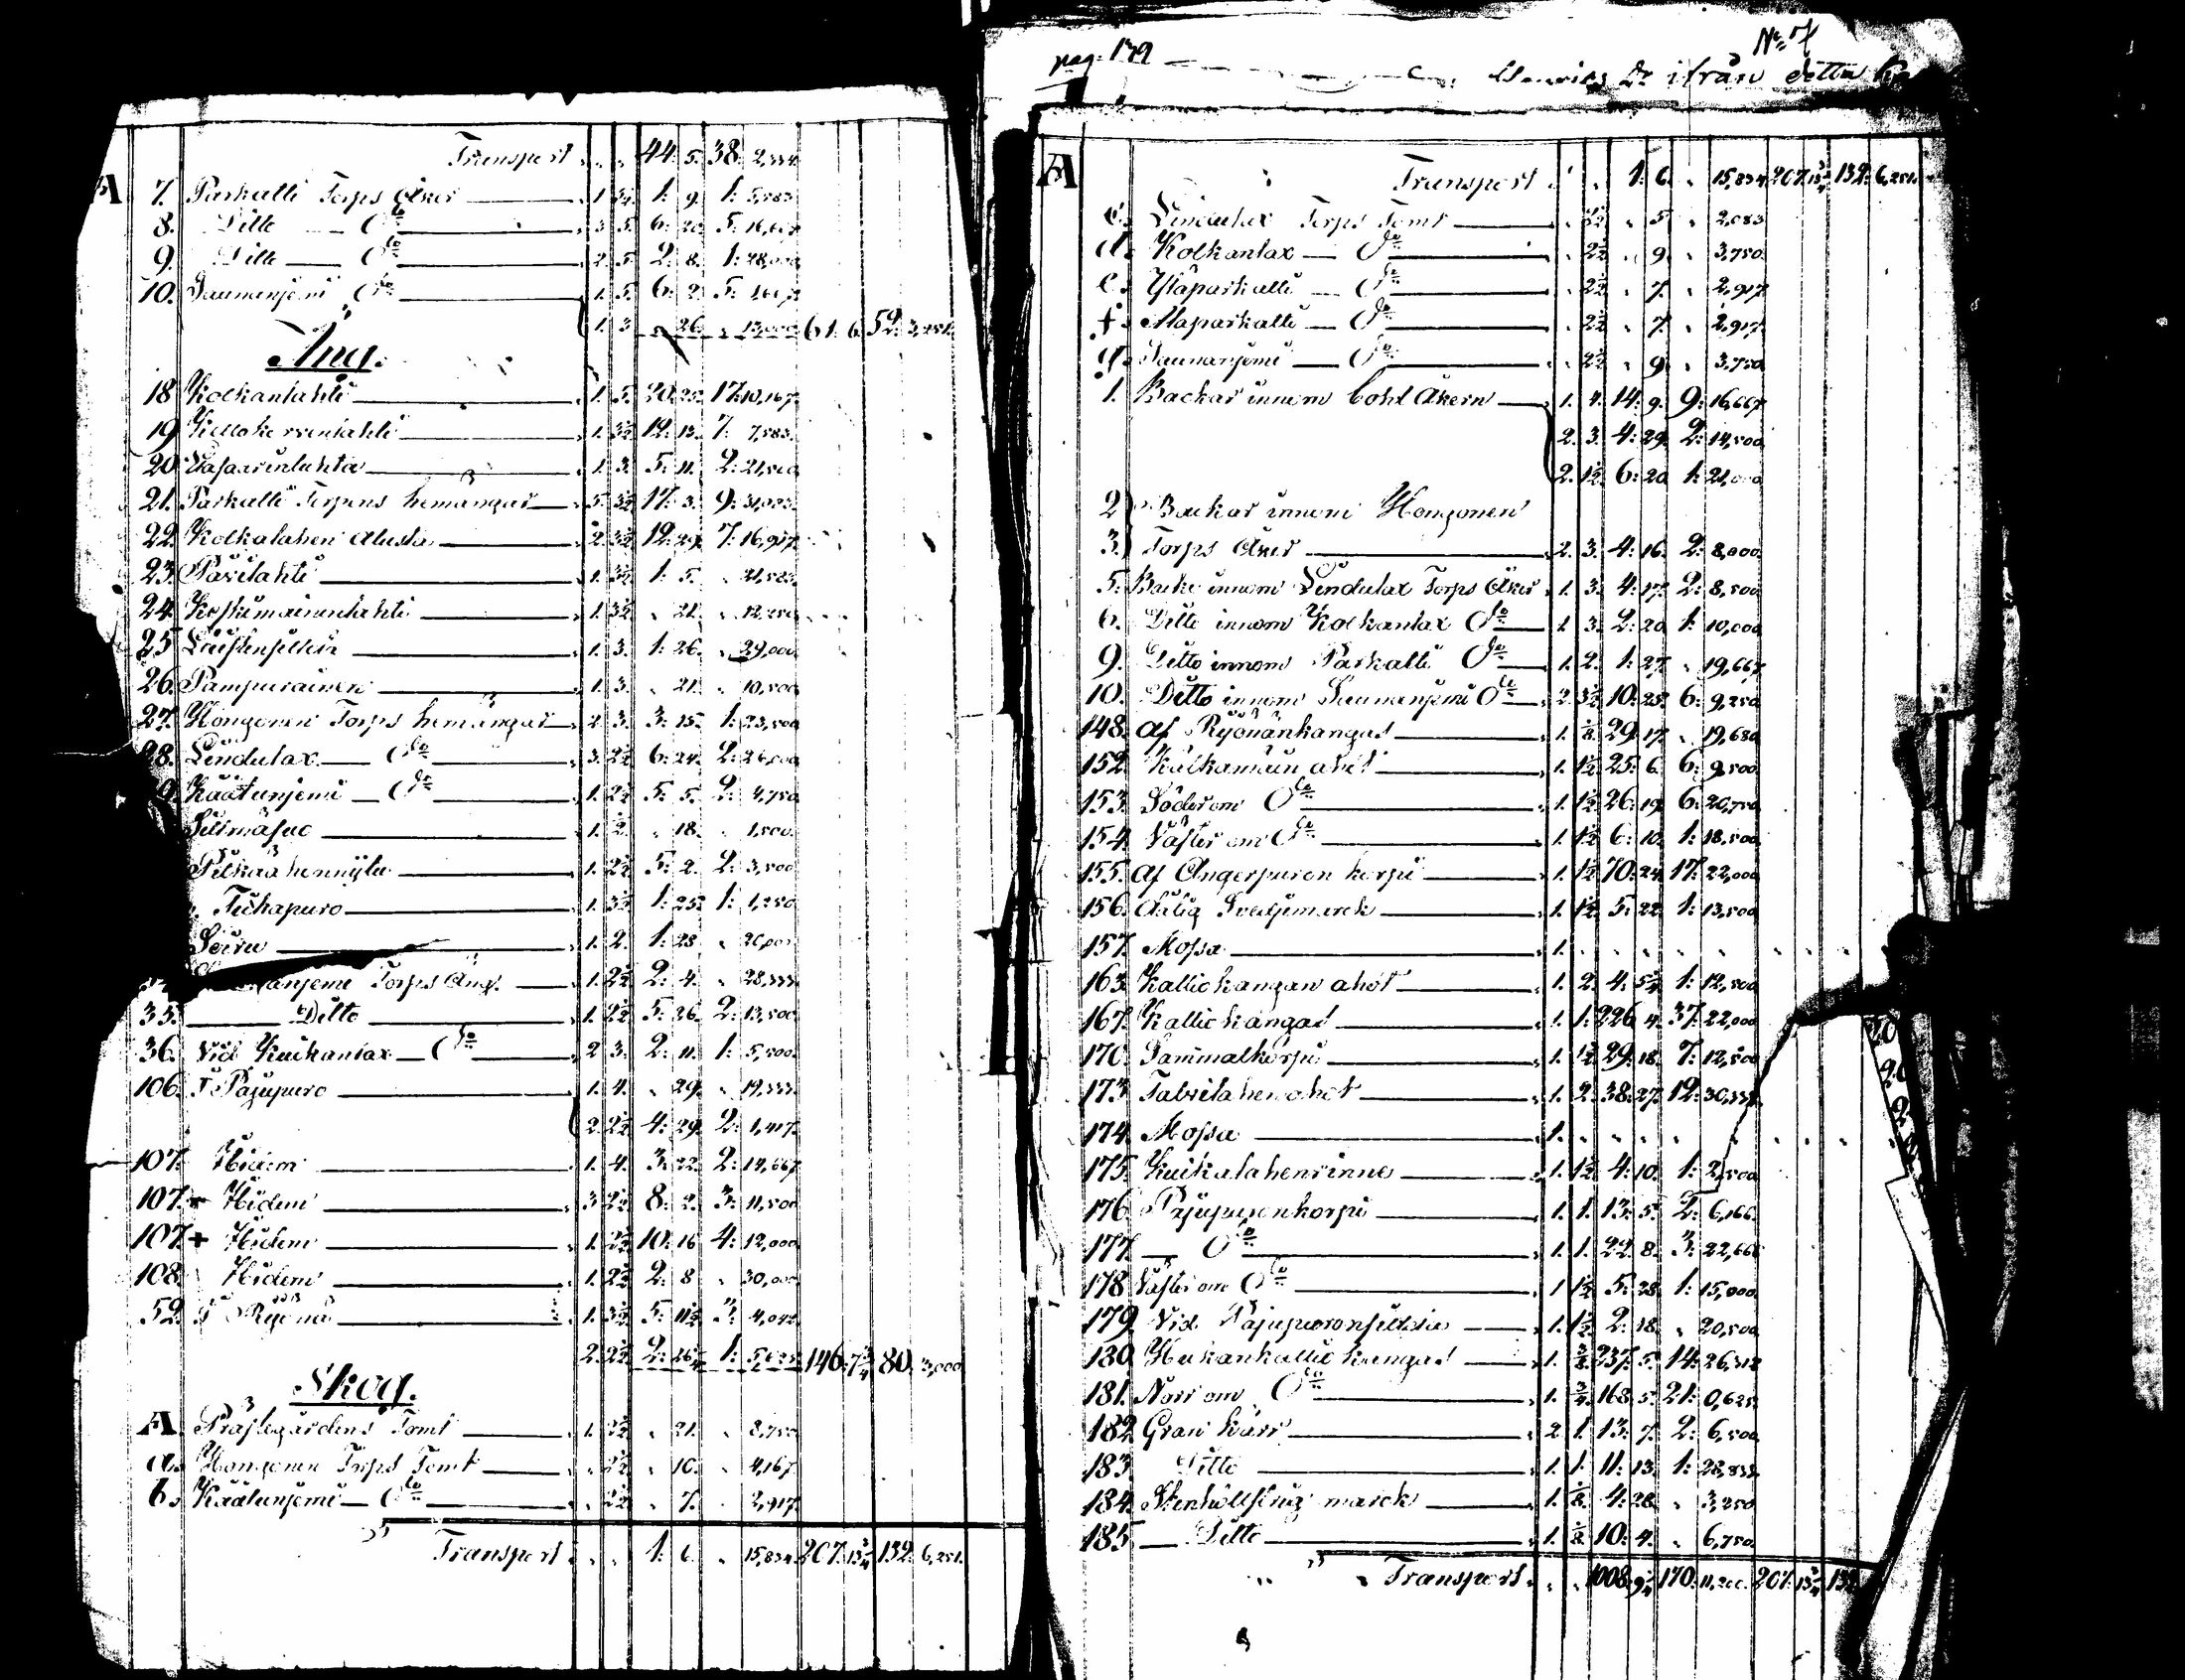 Transport . . . 44. 5. 38. 2,334.
A 7. Parkalli Torps Åker 1. 1. 9. 1: 5,583.
8. Ditto D:o 3. 5. 6: 20. 5: 16,667
9. Ditto D:o 2. 5. 2: 8. 1: 28,000
10. Saunanjemi D:o 1. 5. 6: 2. 5: 1,667
1. 3. „ 26. „ 13,000 61. 6. 52. 3,251.
Äng.
18 Kolkanlahti 1. 5. 20. 25. 17: 10,167.
19 1. 3½ 12. 13. 7. 7,583.
20. 1. 3. 5. 11. 2: 21,500
21. Parkalli Torpens hemängar 5. 3½ 17. 3. 9: 31,083.
22. Kolkalahen alusta 2. 3½ 12: 29. 7: 16,917.
23. Parilahti 1. 3½ 1: 5. „ 21,583.
24. Keskimäinenlahti 1. 3½ „ 21. „ 12,250
25 1. 3. 1: 26. „ 29,000.
26. Pampurainen 1. 3. „ 21. „ 10,500
27. Hongonen Torps hemängar 2. 3. 3: 15. 1: 23,500
28. Lindulax D:o 3. 2½ 6: 24. 2: 26,000
9. Käätunjemi D:o 1. 2½ 5: 5. 2: 4,750
Silmäsuo 1. 2. „ 18. „ 1,500.
Pitkäähenniitu 1. 2½ 5: 2. 2: 3,500
Tichapuro 1. 3½ 1: 25. 1: 1,250
1. 2. 1: 28. „ 20,000
anjemi Torps Äng. 1. 2½ 2: 4. „ 28,333
35. Ditto 1. 2½ 5: 26. 2: 13,500
36. Vid Kuikanlax D:o 2. 3. 2: 11. 1: 5,500.
106. I Pajupuro 1. 4. „ 29. „ 19,333.
2. 2½ 4: 29. 2: 1,417.
107. Ibidem 1. 4. 3: 22. 2: 14,667
107.* Ibidem 3. 2½ 8: 2. 3: 11,500
107.+ Ibidem 1. 2½ 10: 16 4: 12,000
108. Ibidem 1. 2½ 2: 8 „ 30,000
52. I Ryönä 1. 3½ 5: 11½ 3: 4,042
2. 2½ 2: 26¼ 1: 5,625. 146. 7¾ 80. 3,000
Skog.
A. Prästegårdens Tomt 1. 2½ „ 21. „ 8,750
a. Hongonen Torps Tomt . 2½ „ 10. „ 4,167
b. Käätunjemi D:o . 2½ „ 7. „ 2,917.
Transport . . . 1: 6. „ 15,834. 207. 13¾ 132. 6,251.
pag. 139
N:o 7
ifrån detta
A Transport . „ . 1: 6. „ 15,834. 207. 13¾ 132: 6,251.
c. Lindulax Torps Tomt . 2½ „ 5 „ 2,083
d. Kolkanlax D:o . 2½ „ 9. „ 3,750.
e. Yläparkalli D:o . 2½ „ 7. „ 2,917
f. Alaparkalli D:o . 2½ „ 7. „ 2,917.
g. Saunanjemi D:o . 2½ „ 9. „ 3,750
1. Backar innom Åkern 1. 4. 14: 9. 9: 16,667
2. 3. 4: 29. 2: 14,500
2. 1½ 6: 20 1: 21,000
2) Backar innom Hongonen
3.) Torps Åker 2. 3. 4: 16. 2: 8,000
5. Backe innom Lindulax Torps Åker 1. 3. 4: 17. 2: 8,500
6. Ditto innom Kolkanlax D:o 1. 3. 2: 20 1: 10,000
9. Ditto innom Parkalli D:o 1. 2. 1: 27. „ 19,667
10. Ditto innom Saunanjemi D:o 2. 3½ 10: 25. 6: 9,250
148. af Ryönänkangas 1. ⅛ 29: 17. „ 19,680
152. Kälkämäin ahot 1. 1½ 25: 6. 6: 9,500
153. Söder om D:o 1. 1½ 26: 19. 6: 20,750
154. Väster om D:o 1. 1½ 6: 10. 1: 18,500
155. af Angerpuron korpi 1. 1½ 70: 24. 17: 22,000
156. dålig Svedjemarck 1. 1½ 5: 22. 1: 13,500
157. Mossa 1. . . . . .
163. Kalliokangan ahot 1. 2. 4: 5¼ 1: 12,500
167. Kalliokangas 1. 1. 226: 4. 37: 22,000
170. Sammalkorpi 1. 1½ 29: 18. 7: 12,500
173. Talvilahenahot 1. 2. 38: 27. 12: 30,333.
174. Mossa 1. . . . . .
175. Kuikalahenrinne 1. 1½ 4: 10. 1: 2,500
176. Pajupuronkorpi 1. 1. 13: 5. 2: 6,166.
177. D:o 1. 1. 22: 8. 3: 22,666
178 Väster om D:o 1 1½ 5: 28. 1: 15,000
179. Vid Pajupuronsilldia 1. 1½ 2: 18. „ 20,500
180. Hukankalliokangas 1. ⅜ 237: 5. 14: 26,312
181. Norr om D:o 1. ¾ 168: 5. 21: 0,625.
182. Gran kärr 2. 1. 13: 7. 2: 6,500.
183. Ditto 1. 1. 11: 13. 1: 28,833.
184. Stenhultslug marck 1. ⅛ 4: 28. „ 3,250
185. Ditto 1. ⅛ 10: 4. „ 6,750
Transport . . . 1008. 9¾ 170. 11,200. 207. 13¾ 132